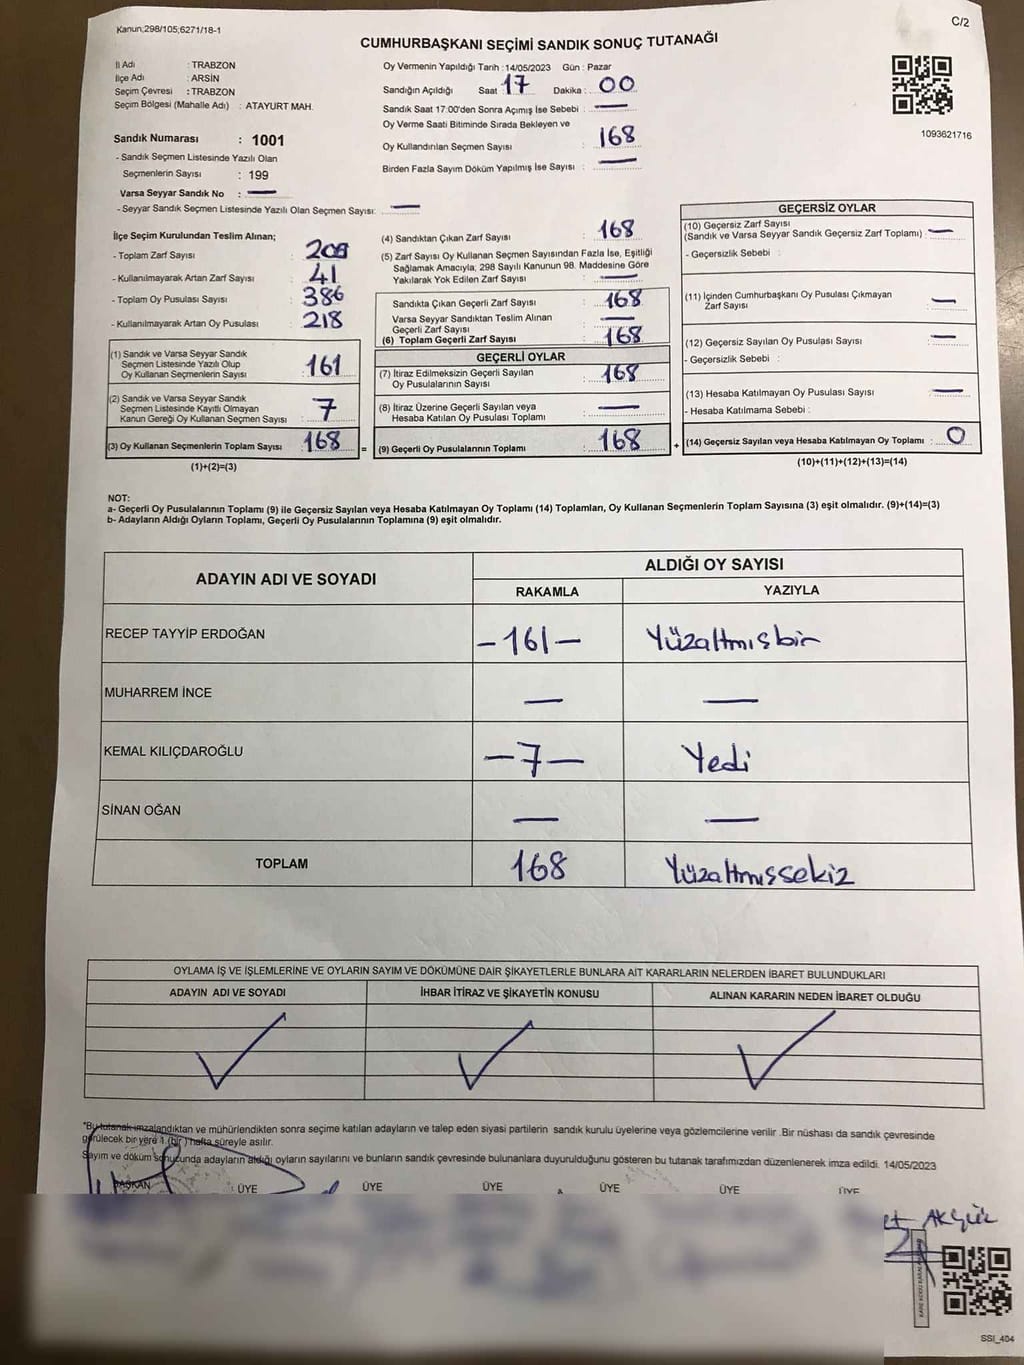 Kanun;298/105;6271/18-1
C/2
CUMHURBAŞKANI SEÇİMİ SANDIK SONUÇ TUTANAĞI
İl Adı : TRABZON
İlçe Adı : ARSİN
Seçim Çevresi : TRABZON
Seçim Bölgesi (Mahalle Adı) : ATAYURT MAH.
Sandık Numarası : 1001
- Sandık Seçmen Listesinde Yazılı Olan
Seçmenlerin Sayısı : 199
Varsa Seyyar Sandık No : —
- Seyyar Sandık Seçmen Listesinde Yazılı Olan Seçmen Sayısı: —
Oy Vermenin Yapıldığı Tarih : 14/05/2023 Gün : Pazar
Sandığın Açıldığı Saat : 17 Dakika : 00
Sandık Saat 17:00'den Sonra Açımış İse Sebebi : —
Oy Verme Saati Bitiminde Sırada Bekleyen ve
Oy Kullandırılan Seçmen Sayısı : 168
Birden Fazla Sayım Döküm Yapılmış İse Sayısı : —
1093621716
İlçe Seçim Kurulundan Teslim Alınan;
- Toplam Zarf Sayısı :
- Kullanılmayarak Artan Zarf Sayısı : 41
- Toplam Oy Pusulası Sayısı : 386
- Kullanılmayarak Artan Oy Pusulası : 218
(1) Sandık ve Varsa Seyyar Sandık
Seçmen Listesinde Yazılı Olup
Oy Kullanan Seçmenlerin Sayısı : 161
(2) Sandık ve Varsa Seyyar Sandık
Seçmen Listesinde Kayıtlı Olmayan
Kanun Gereği Oy Kullanan Seçmen Sayısı : 7
(3) Oy Kullanan Seçmenlerin Toplam Sayısı : 168 =
(1)+(2)=(3)
(4) Sandıktan Çıkan Zarf Sayısı : 168
(5) Zarf Sayısı Oy Kullanan Seçmen Sayısından Fazla İse, Eşitliği
Sağlamak Amacıyla; 298 Sayılı Kanunun 98. Maddesine Göre
Yakılarak Yok Edilen Zarf Sayısı : —
Sandıkta Çıkan Geçerli Zarf Sayısı : 168
Varsa Seyyar Sandıktan Teslim Alınan
Geçerli Zarf Sayısı : —
(6) Toplam Geçerli Zarf Sayısı : 168
GEÇERLİ OYLAR
(7) İtiraz Edilmeksizin Geçerli Sayılan
Oy Pusulalarının Sayısı : 168
(8) İtiraz Üzerine Geçerli Sayılan veya
Hesaba Katılan Oy Pusulası Toplamı : —
(9) Geçerli Oy Pusulalarının Toplamı : 168 +
GEÇERSİZ OYLAR
(10) Geçersiz Zarf Sayısı
(Sandık ve Varsa Seyyar Sandık Geçersiz Zarf Toplamı) : —
- Geçersizlik Sebebi :
(11) İçinden Cumhurbaşkanı Oy Pusulası Çıkmayan
Zarf Sayısı : —
(12) Geçersiz Sayılan Oy Pusulası Sayısı : —
- Geçersizlik Sebebi :
(13) Hesaba Katılmayan Oy Pusulası Sayısı : —
- Hesaba Katılmama Sebebi :
(14) Geçersiz Sayılan veya Hesaba Katılmayan Oy Toplamı : 0
(10)+(11)+(12)+(13)=(14)
NOT:
a- Geçerli Oy Pusulalarının Toplamı (9) ile Geçersiz Sayılan veya Hesaba Katılmayan Oy Toplamı (14) Toplamları, Oy Kullanan Seçmenlerin Toplam Sayısına (3) eşit olmalıdır. (9)+(14)=(3)
b- Adayların Aldığı Oyların Toplamı, Geçerli Oy Pusulalarının Toplamına (9) eşit olmalıdır.
ADAYIN ADI VE SOYADI ALDIĞI OY SAYISI
RAKAMLA YAZIYLA
RECEP TAYYİP ERDOĞAN -161- Yüzaltmışbir
MUHARREM İNCE — —
KEMAL KILIÇDAROĞLU -7- Yedi
SİNAN OĞAN — —
TOPLAM 168 Yüzaltmışsekiz
OYLAMA İŞ VE İŞLEMLERİNE VE OYLARIN SAYIM VE DÖKÜMÜNE DAİR ŞİKAYETLERLE BUNLARA AİT KARARLARIN NELERDEN İBARET BULUNDUKLARI
ADAYIN ADI VE SOYADI İHBAR İTİRAZ VE ŞİKAYETİN KONUSU ALINAN KARARIN NEDEN İBARET OLDUĞU
*Bu tutanak imzalandıktan ve mühürlendikten sonra seçime katılan adayların ve talep eden siyasi partilerin sandık kurulu üyelerine veya gözlemcilerine verilir .Bir nüshası da sandık çevresinde
görülecek bir yere 1 (bir) hafta süreyle asılır.
Sayım ve döküm sonucunda adayların aldığı oyların sayılarını ve bunların sandık çevresinde bulunanlara duyurulduğunu gösteren bu tutanak tarafımızdan düzenlenerek imza edildi. 14/05/2023
BAŞKAN ÜYE ÜYE ÜYE ÜYE ÜYE ÜYE
SSI_404